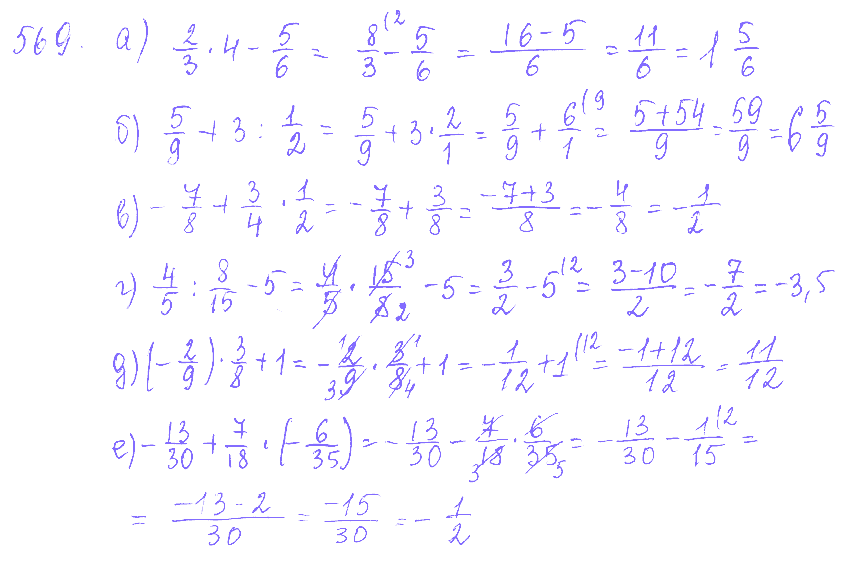 569. а) 2/3 · 4 - 5/6 = 8/3 (2 - 5/6 = (16-5)/6 = 11/6 = 1 5/6
б) 5/9 + 3 : 1/2 = 5/9 + 3 · 2/1 = 5/9 + 6/1 (9 = (5+54)/9 = 59/9 = 6 5/9
в) - 7/8 + 3/4 · 1/2 = - 7/8 + 3/8 = (-7+3)/8 = - 4/8 = - 1/2
г) 4/5 : 8/15 - 5 = 4/5 · 15 3/8 2 - 5 = 3/2 - 5 (2 = (3-10)/2 = - 7/2 = -3,5
д) (- 2/9) · 3/8 + 1 = - 1 2/3 9 · 3 1/8 4 + 1 = - 1/12 + 1 (12 = (-1+12)/12 = 11/12
е) - 13/30 + 7/18 · (- 6/35) = - 13/30 - 7/3 18 · 6/35 5 = - 13/30 - 1 (2/15 =
= (-13-2)/30 = -15/30 = - 1/2